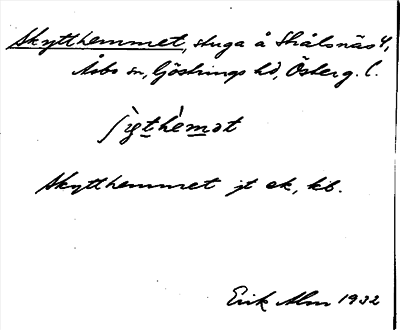 Skytthemmet, stuga å Skålsnäs 4,
Åsbo sn, Göstrings hd, Österg. l.
Skytthemmet jt ek, kb.
Erik Alm 1932